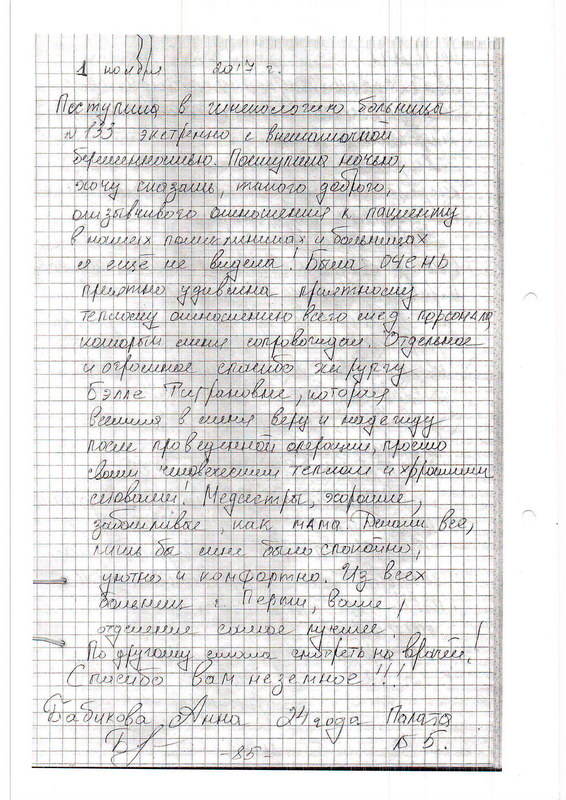 1 ноября 2017 г.
Поступила в гинекологию больницы
№ 133 экстренно с внематочной
беременностью. Поступила ночью,
хочу сказать, такого доброго,
отзывчивого отношения к пациенту
в наших поликлиниках и больницах
я ещё не видела! Была очень
приятно удивлена приятному
теплому отношению всего мед. персонала,
который меня сопровождал. Отдельное
и огромное спасибо хирургу
Бэлле Тиграновне, которая
вселила в меня веру и надежду
после проведенной операции, просто
своим человеческим теплом и хорошими
словами! Медсестры, хорошие,
заботливые, как мама. Делали все,
лишь бы мне было спокойно,
уютно и комфортно. Из всех
больниц г. Перми, ваше
отделение самое лучшее!
По другому стала смотреть на врачей!
Спасибо вам неземное!!!
Бабикова Анна 24 года Палата
№ 5.
-85-